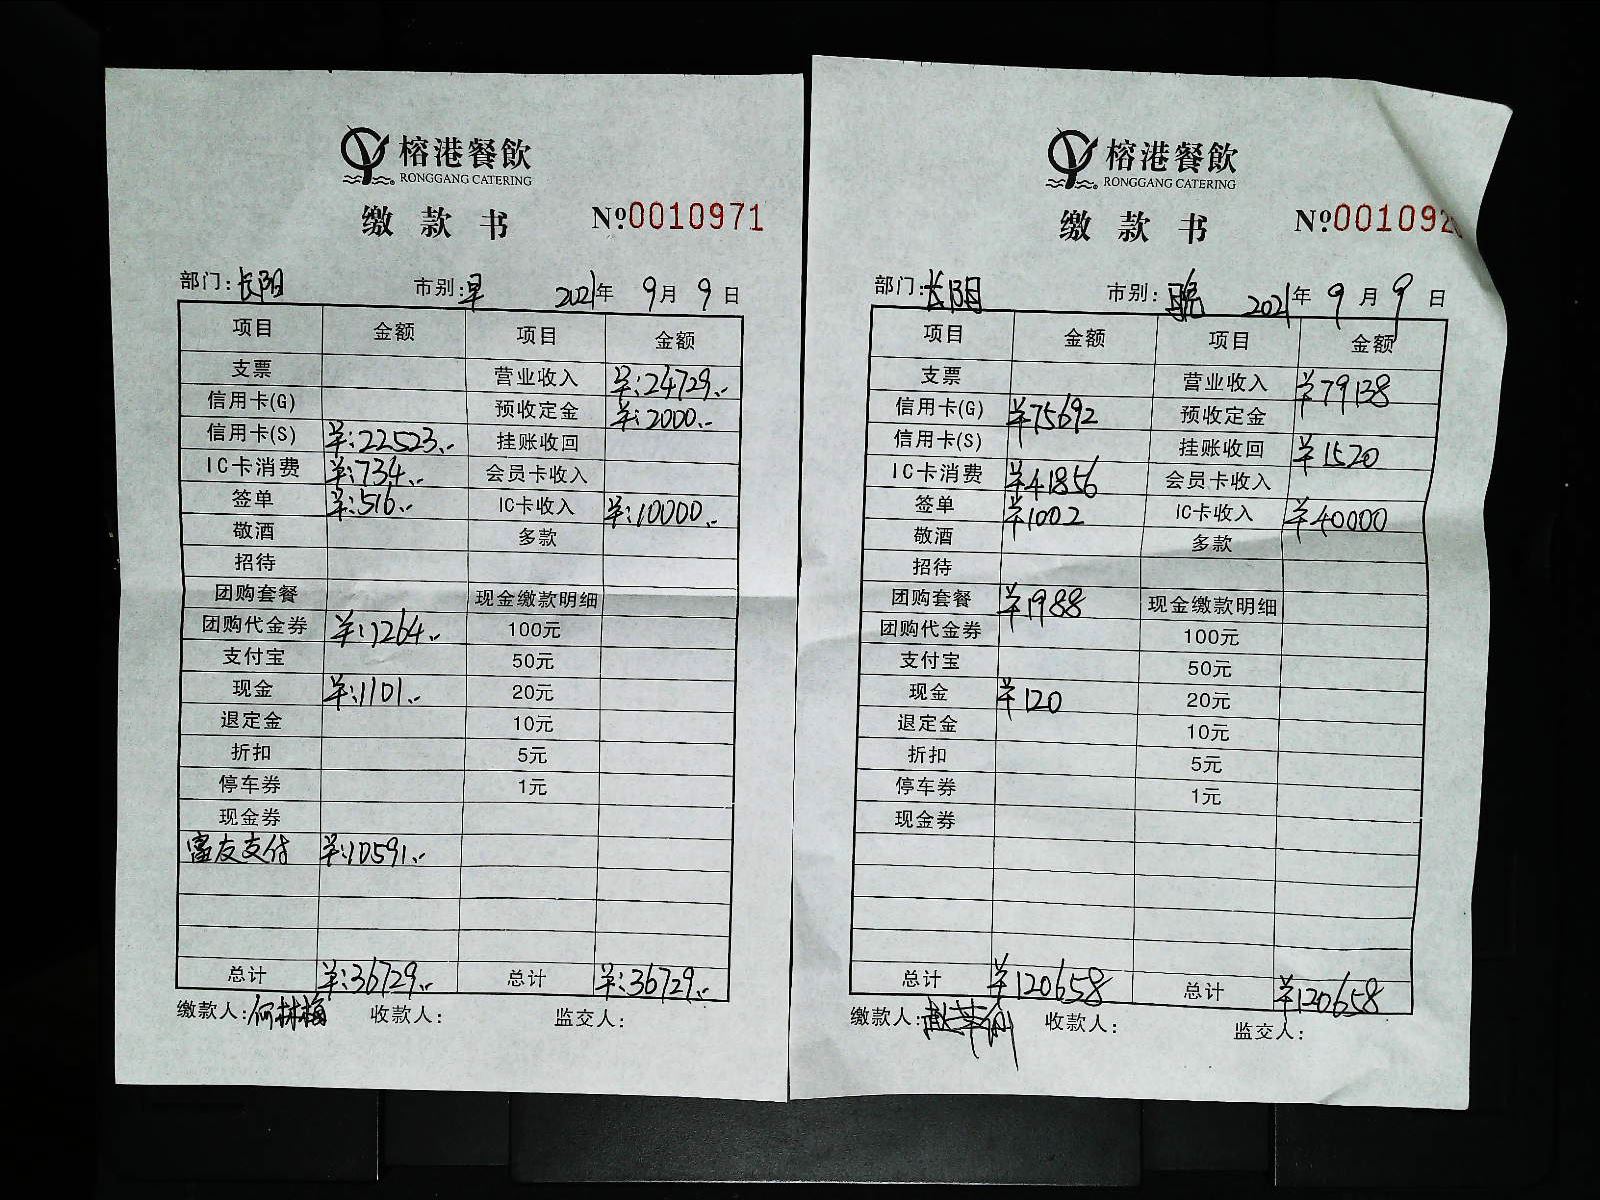 榕港餐飲
RONGGANG CATERING
缴款书 №0010971
部门:长阳 市别:早 2021年 9月 9日
项目 金额 项目 金额
支票 营业收入 ¥:24729.-
信用卡(G) 预收定金 ¥:2000.-
信用卡(S) ¥:22523.- 挂账收回
IC卡消费 ¥:734.- 会员卡收入
签单 ¥:516.- IC卡收入 ¥:10000.-
敬酒 多款
招待
团购套餐 现金缴款明细
团购代金券 ¥:1264.- 100元
支付宝 50元
现金 ¥:1101.- 20元
退定金 10元
折扣 5元
停车券 1元
现金券
富友支付 ¥:10591.-
总计 ¥:36729.- 总计 ¥:36729.-
缴款人:何林梅 收款人: 监交人:
榕港餐飲
RONGGANG CATERING
缴款书 №001092
部门:长阳 市别:晚 2021年 9月 9日
项目 金额 项目 金额
支票 营业收入 ¥79138
信用卡(G) ¥75692 预收定金
信用卡(S) 挂账收回 ¥1520
IC卡消费 ¥41856 会员卡收入
签单 ¥1002 IC卡收入 ¥40000
敬酒 多款
招待
团购套餐 ¥1988 现金缴款明细
团购代金券 100元
支付宝 50元
现金 ¥120 20元
退定金 10元
折扣 5元
停车券 1元
现金券
总计 ¥120658 总计 ¥120658
缴款人: 收款人: 监交人: